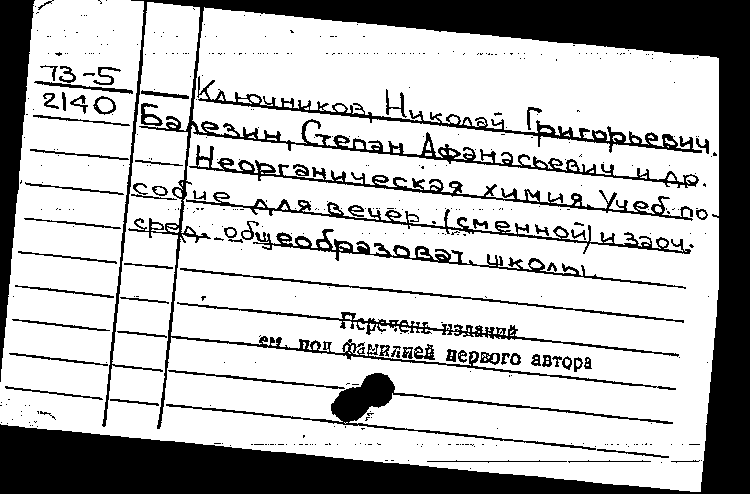 73-5
2140
Ключников, Николай Григорьевич.
Балезин, Степан Афанасьевич и др.
Неорганическая химия. Учеб. по-
собие для вечер. (сменной) и заоч.
сред. общеобразоват. школы.
Перечень изданий
см. под фамилией первого автора